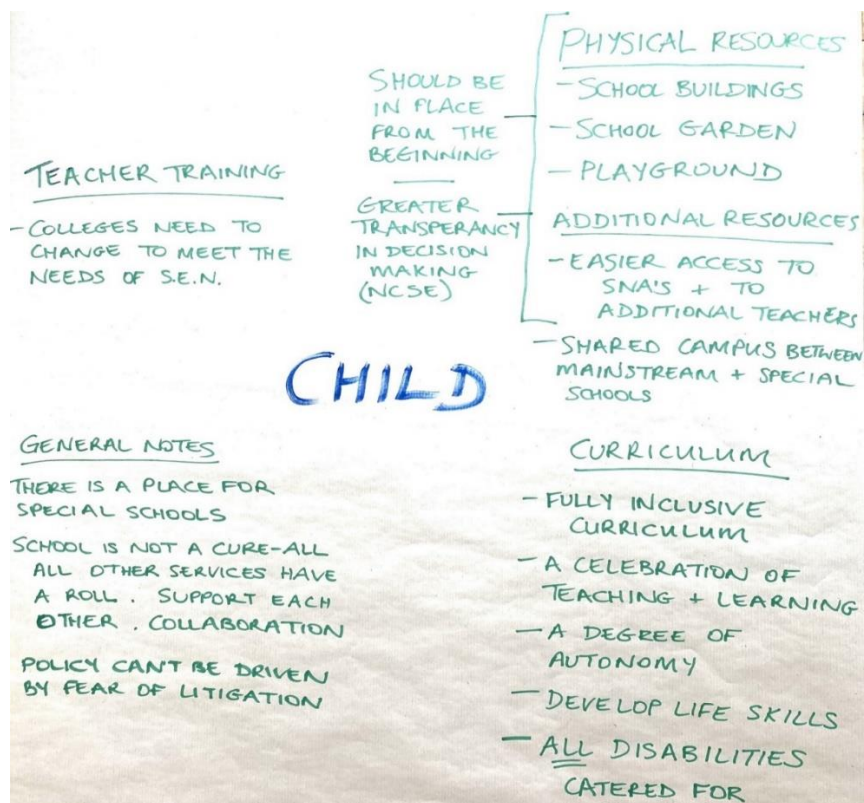 TEACHER TRAINING
- COLLEGES NEED TO
CHANGE TO MEET THE
NEEDS OF S.E.N.
SHOULD BE
IN PLACE
FROM THE
BEGINNING
GREATER
TRANSPERANCY
IN DECISION
MAKING
(NCSE)
PHYSICAL RESOURCES
- SCHOOL BUILDINGS
- SCHOOL GARDEN
- PLAYGROUND
ADDITIONAL RESOURCES
- EASIER ACCESS TO
SNA'S + TO
ADDITIONAL TEACHERS
- SHARED CAMPUS BETWEEN
MAINSTREAM + SPECIAL
SCHOOLS
CHILD
GENERAL NOTES
THERE IS A PLACE FOR
SPECIAL SCHOOLS
SCHOOL IS NOT A CURE-ALL
ALL OTHER SERVICES HAVE
A ROLL. SUPPORT EACH
OTHER. COLLABORATION
POLICY CAN'T BE DRIVEN
BY FEAR OF LITIGATION
CURRICULUM
- FULLY INCLUSIVE
CURRICULUM
- A CELEBRATION OF
TEACHING + LEARNING
- A DEGREE OF
AUTONOMY
- DEVELOP LIFE SKILLS
- ALL DISABILITIES
CATERED FOR